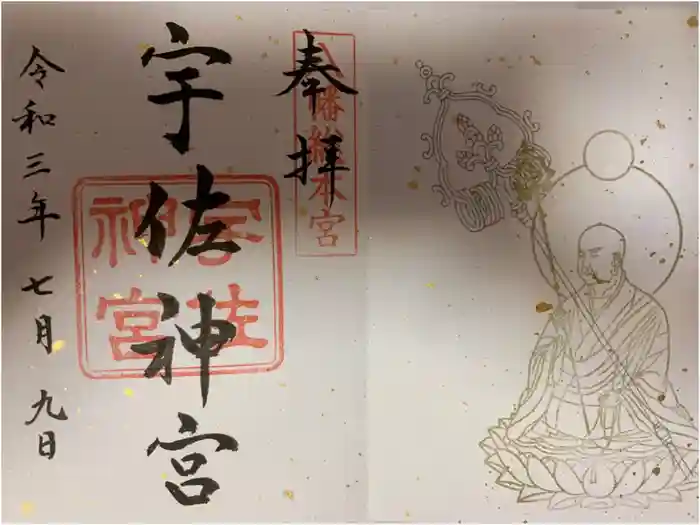 奉拝
八幡総本宮
宇佐神宮
宇佐
神宮
令和三年七月九日